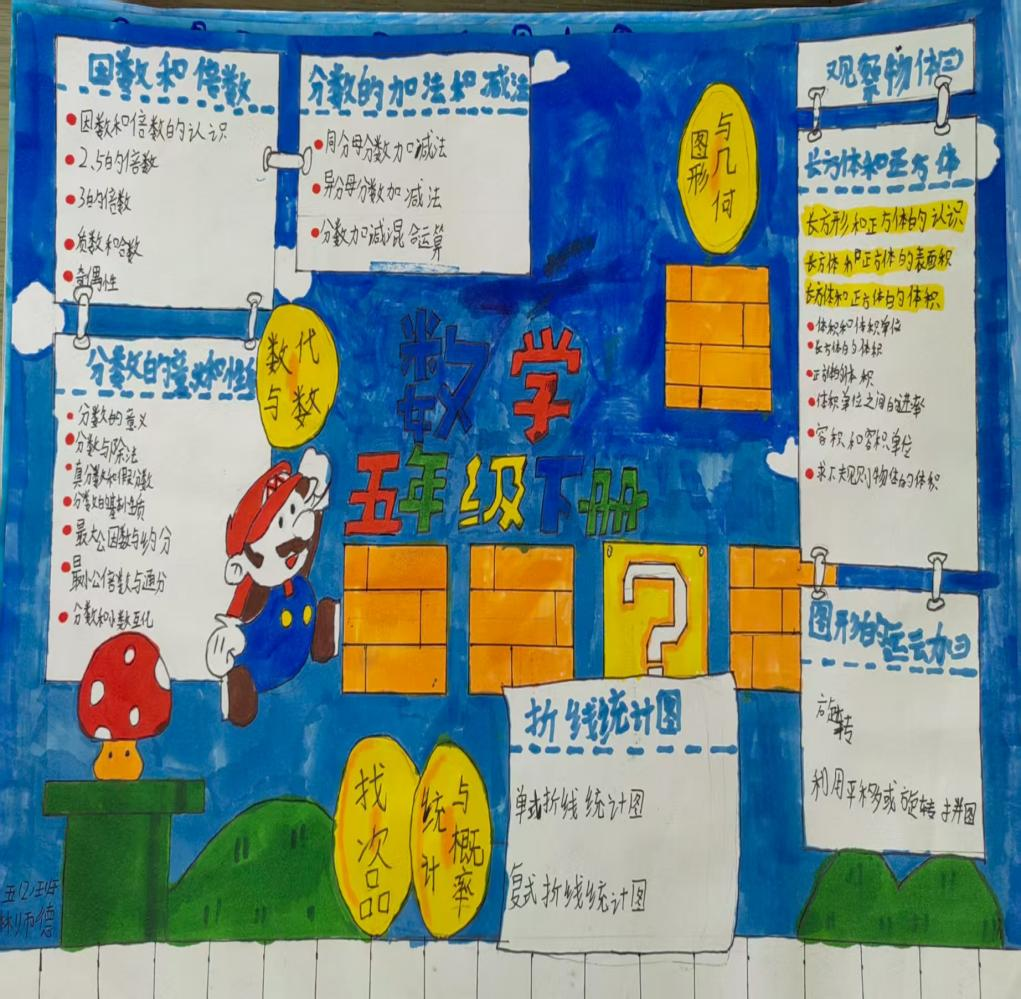 因数和倍数
因数和倍数的认识
2、5的倍数
3的倍数
质数和合数
奇偶性
分数的意义和性质
分数的意义
分数与除法
真分数和假分数
分数的基本性质
最大公因数与约分
最小公倍数与通分
分数和小数互化
分数的加法和减法
同分母分数加减法
异分母分数加减法
分数加减混合运算
数与代数
图形与几何
数学
五年级下册
观察物体
长方体和正方体
长方形和正方体的认识
长方体和正方体的表面积
长方体和正方体的体积
体积和体积单位
长方体的体积
体积单位之间的进率
容积和容积单位
求不规则物体的体积
图形的运动
旋转
利用平移或旋转拼图
?
折线统计图
单式折线统计图
复式折线统计图
找次品
统计与概率
五(2)班
林师德